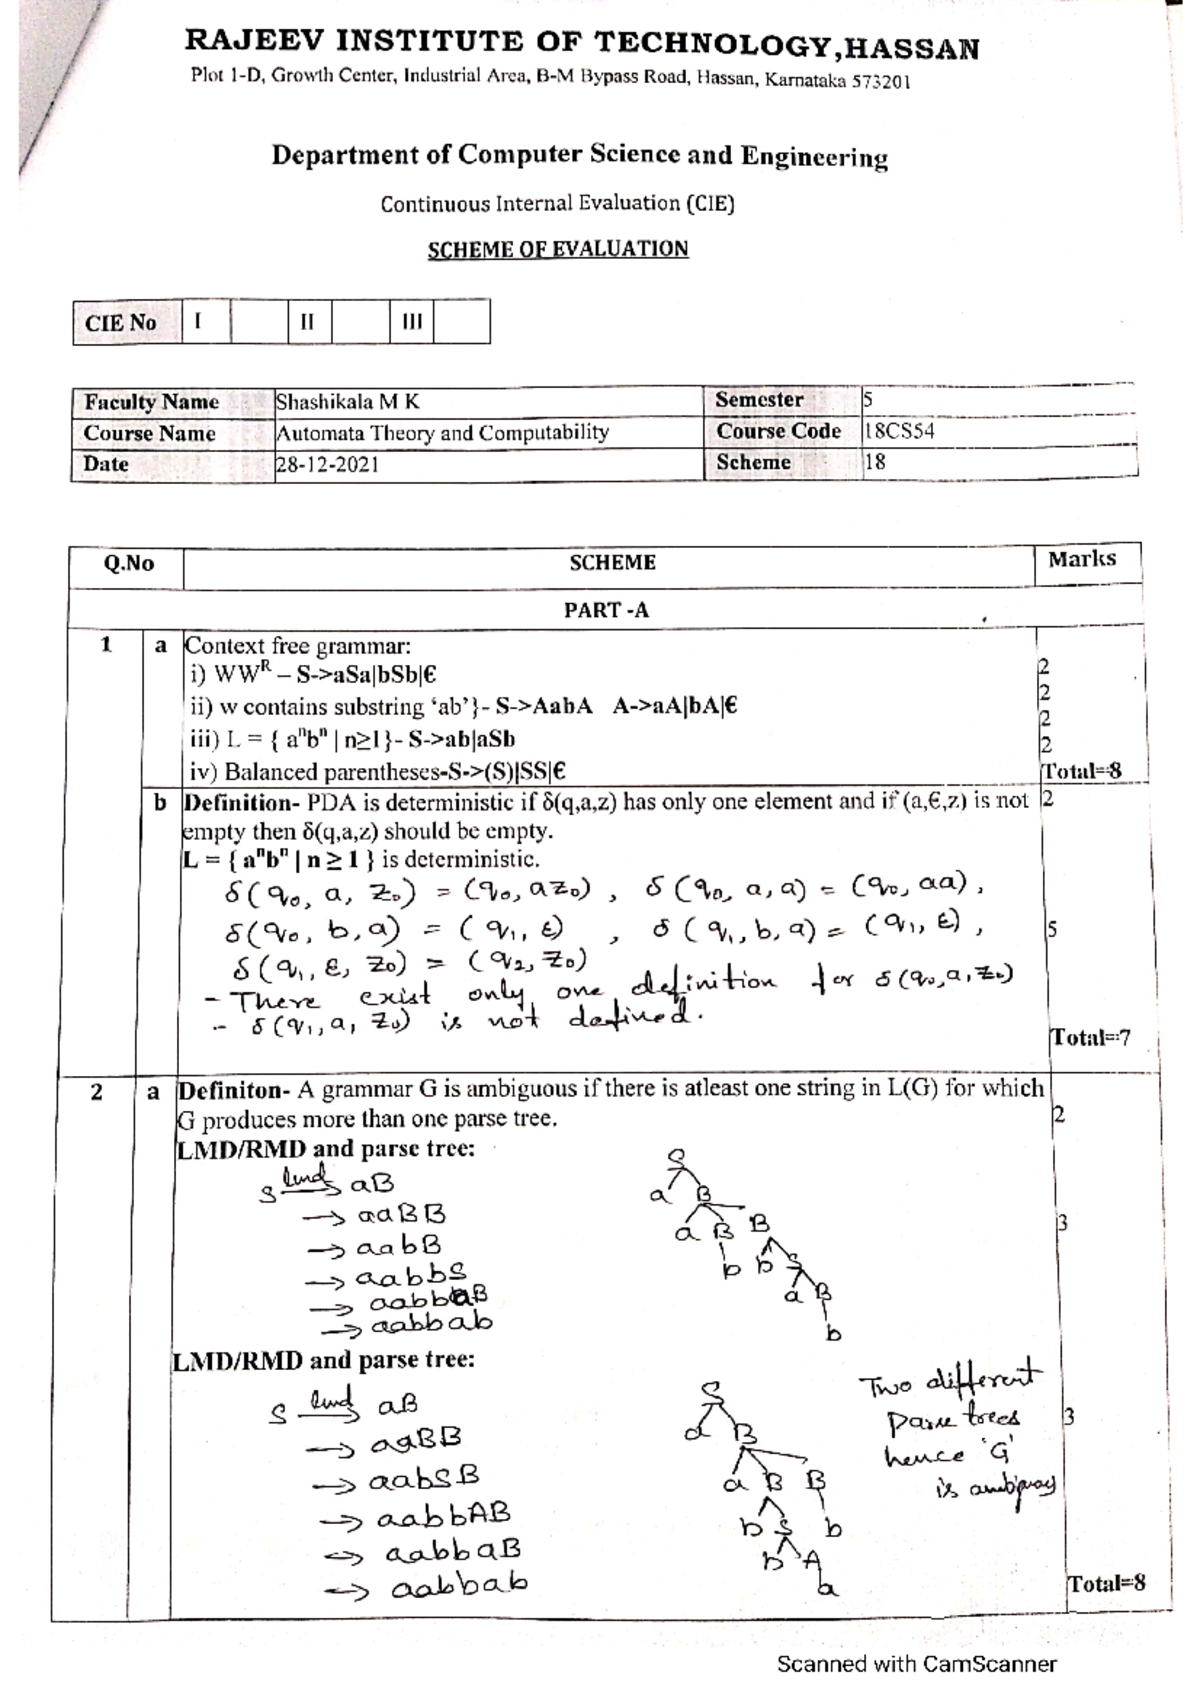 RAJEEV INSTITUTE OF TECHNOLOGY,HASSAN
Plot 1-D, Growth Center, Industrial Area, B-M Bypass Road, Hassan, Karnataka 573201
Department of Computer Science and Engineering
Continuous Internal Evaluation (CIE)
SCHEME OF EVALUATION
CIE No I II III
Faculty Name Shashikala M K Semester 5
Course Name Automata Theory and Computability Course Code 18CS54
Date 28-12-2021 Scheme 18
Q.No SCHEME Marks
PART -A
1 a Context free grammar:
i) WWᴿ – S->aSa|bSb|€ 2
ii) w contains substring ‘ab’}- S->AabA A->aA|bA|€ 2
iii) L = { aⁿbⁿ | n≥1}- S->ab|aSb 2
iv) Balanced parentheses-S->(S)|SS|€ 2
Total=8
b Definition- PDA is deterministic if δ(q,a,z) has only one element and if (a,€,z) is not 2
empty then δ(q,a,z) should be empty.
L = { aⁿbⁿ | n ≥ 1 } is deterministic.
δ(q₀, a, z₀) = (q₀, az₀) , δ (q₀, a, a) = (q₀, aa) ,
δ(q₀, b, a) = (q₁, ε) , δ (q₁, b, a) = (q₁, ε) , 5
δ (q₁, ε, z₀) = (q₂, z₀)
- There exist only one definition for δ(q₀,a,z₀)
- δ(q₁, a, z₀) is not defined.
Total=7
2 a Definiton- A grammar G is ambiguous if there is atleast one string in L(G) for which
G produces more than one parse tree. 2
LMD/RMD and parse tree:
S lmd→ aB
→ aaBB
→ aabB
→ aabbS
→ aabbaB
→ aabbab
S
a B
a B B
b b S
a B
b
3
LMD/RMD and parse tree:
S lmd→ aB
→ aaBB
→ aabSB
→ aabbAB
→ aabbaB
→ aabbab
S
a B
a B B
b S b
b A
a
Two different
parse trees
hence 'G'
is ambiguous
3
Total=8
Scanned with CamScanner